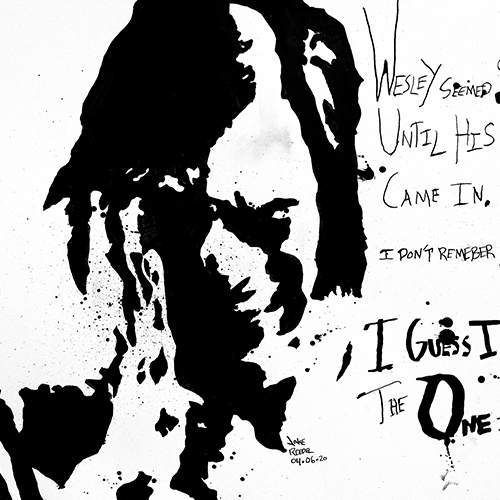 WESLEY SEEMED
UNTIL HIS
CAME IN.
I DON'T REMEBER
I GUESS I
THE ONE
JAKE
04.06.20